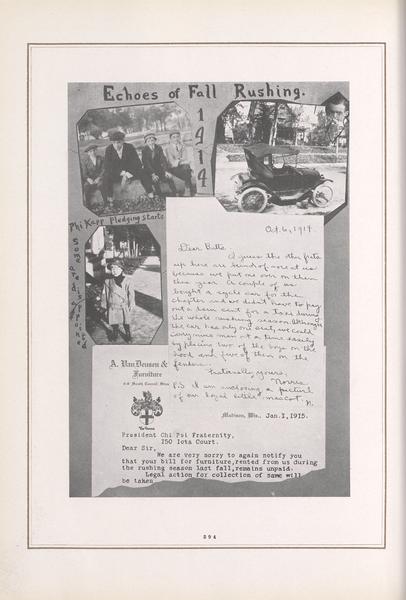 Echoes of Fall Rushing.
1914
Phi Kapp Pledging Starts
Some are disfigured
Oct. 6, 1914.
Dear Betts.
I guess the other frats
up here are kind of sore at us
because we put one over on them
this year. A couple of us
bought a cycle car for the
chapter and we didn't have to pay
out a darn cent for a taxi during
the whole rushing season. Although
the car has only one seat, we could
carry nine men at a time easily
by placing two of the boys on the
hood and five of them on the
fenders.
Fraternally yours,
Norris.
P.S. I am enclosing a picture
of our loyal little mascot. N.
A. Van Deusen &
Furniture
Madison, Wis., Jan. I, 1915.
President Chi Psi Fraternity,
150 Iota Court.
Dear Sir,
We are very sorry to again notify you
that your bill for furniture, rented from us during
the rushing season last fall, remains unpaid.
Legal action for collection of same will
be taken
594